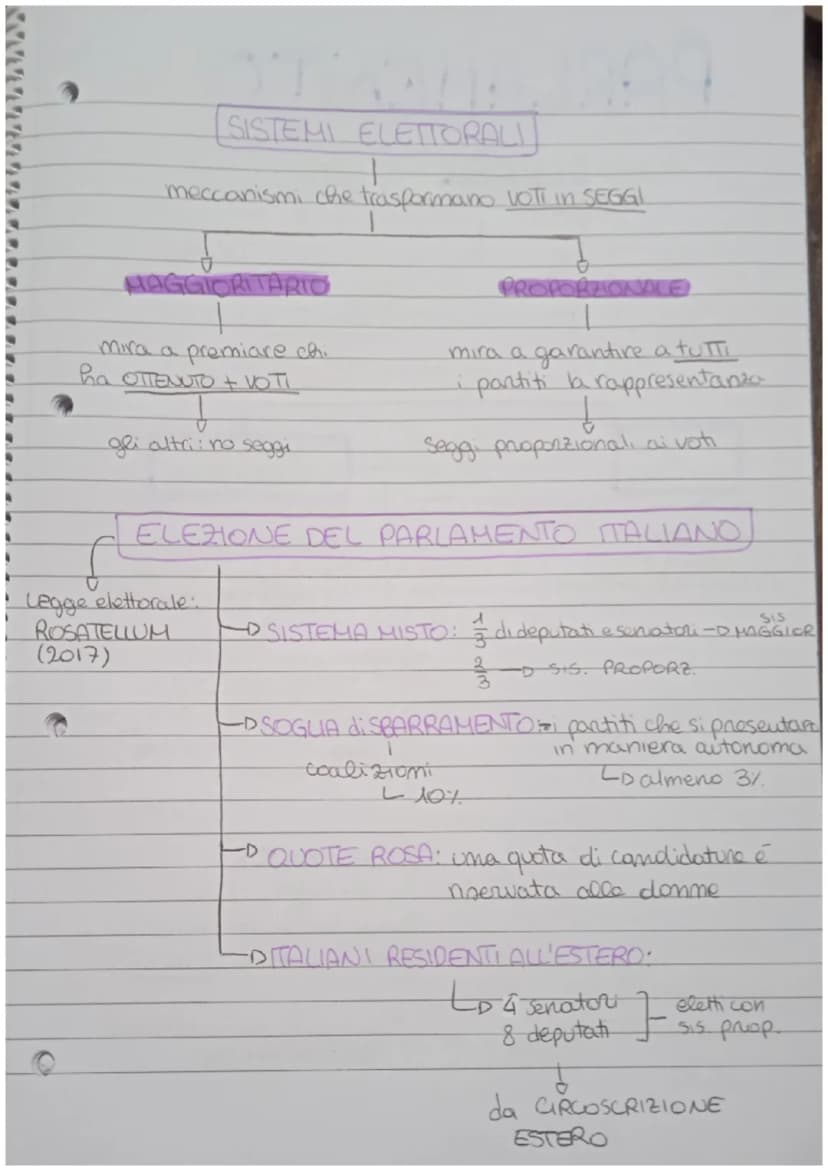 SISTEMI ELETTORALI
meccanismi che trasformano VOTI in SEGGI
MAGGIORITARIO
PROPORZIONALE
mira a premiare chi
ha OTTENUTO + VOTI
gli altri: no seggi
mira a garantire a TUTTI
i partiti la rappresentanza
seggi proporzionali ai voti
ELEZIONE DEL PARLAMENTO ITALIANO
Legge elettorale:
ROSATELLUM
(2017)
SISTEMA MISTO: 1/3 di deputati e senatori → SIS MAGGIOR
2/3 → SIS. PROPORZ.
SOGLIA di SBARRAMENTO → i partiti che si presentan
in maniera autonoma
↳ almeno 3%
coalizioni
↳ 10%
QUOTE ROSA: una quota di candidature è
riservata alle donne
ITALIANI RESIDENTI ALL'ESTERO:
↳ 4 senatori
8 deputati
eletti con
sis. prop.
da CIRCOSCRIZIONE
ESTERO